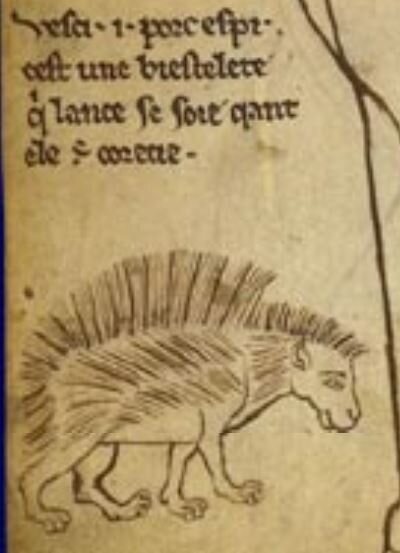 vesci · i · porc espi ·
cest une biestelete
q̍ lance se soie qant
ele ē corecie -